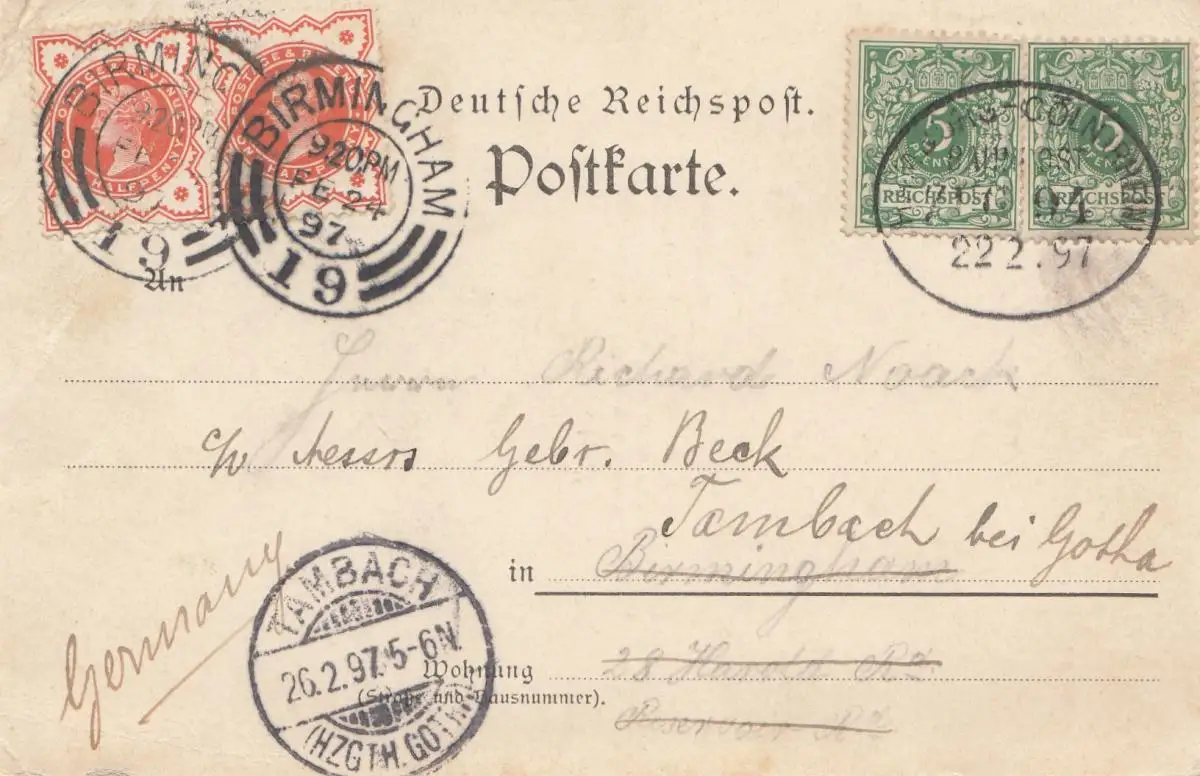 BIRMINGHAM
9.20PM
FE 24
97
19
BIRMING
19
POSTAGE & REVENUE
HALFPENNY
Deutsche Reichspost.
Postkarte.
5 5
PFENNIG PFENNIG
REICHSPOST REICHSPOST
CÖLN (RHEIN)
BAHNPOST
22 2.97
An
Herrn Richard Noack
c/o Messrs Gebr. Beck
Tambach bei Gotha
in Birmingham
Germany
TAMBACH
26.2.97. 5-6N.
(HZGTH. GOTHA)
Wohnung 28 Harold Rd
(Straße und Hausnummer).
Reservoir Rd